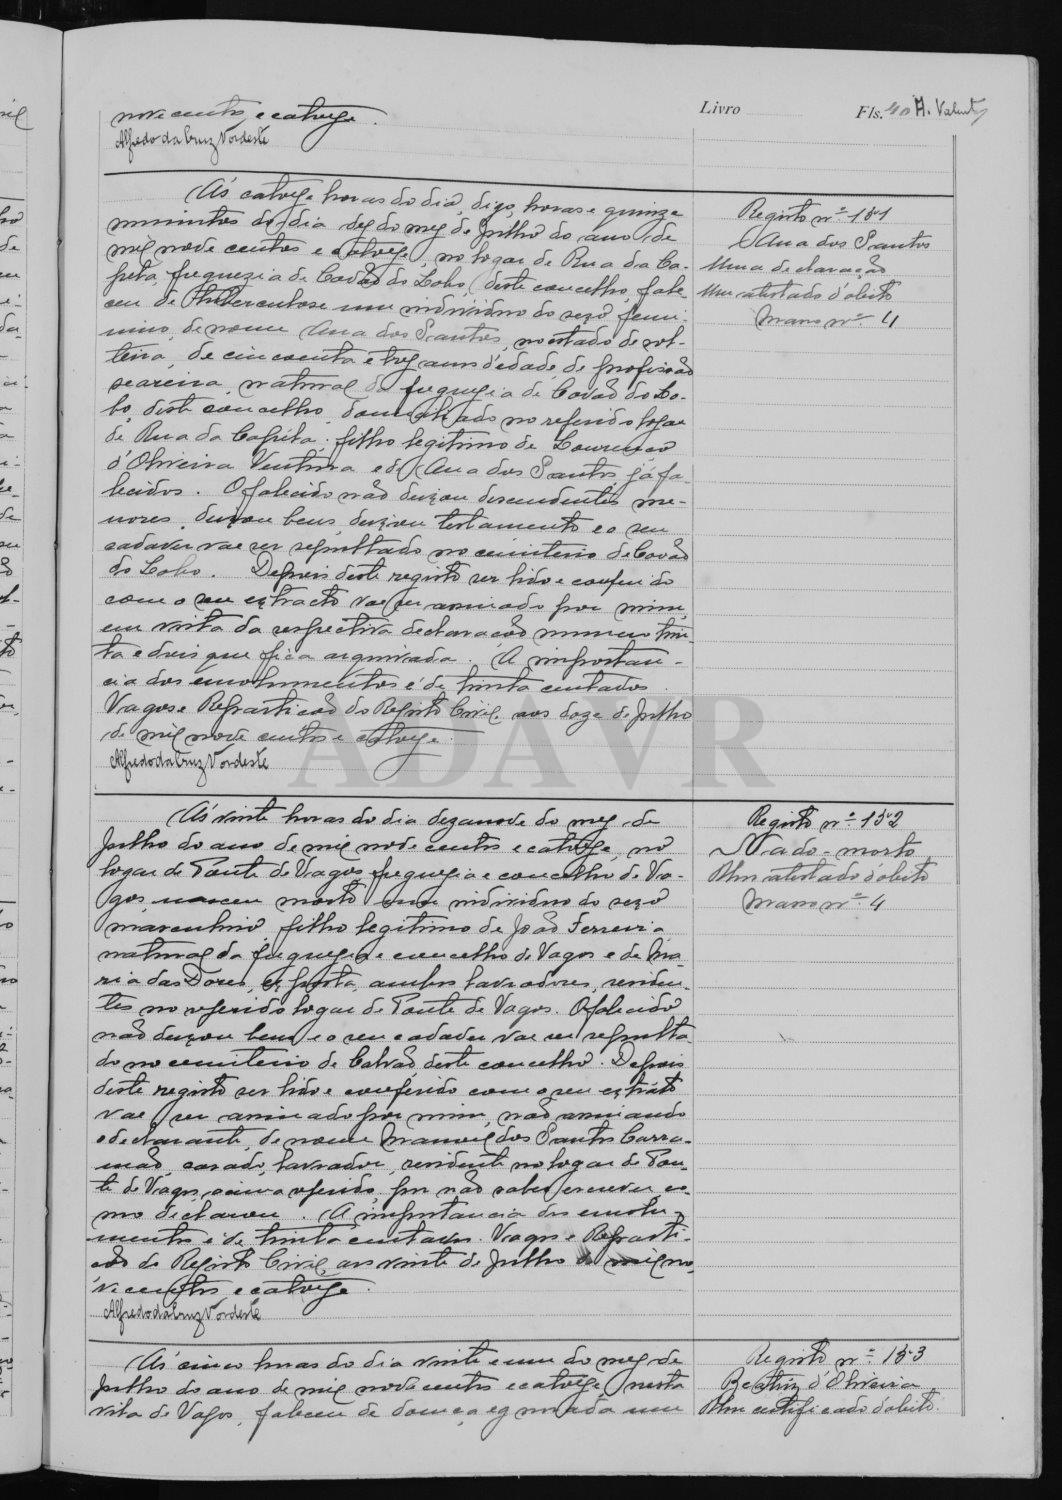 nove centos e catorze.
Livro
Fls. 40 A. Valente
Alfredo da Cruz Nordeste
Ás catorze horas do dia, digo, horas e quinze
minutos do dia dez do mez de Julho do ano de
mil nove centos e catorze, no logar de Rua da Ca-
pela, freguezia de Covão do Lobo, deste concelho, fale-
ceu de tuberculose um individuo do sexo femi-
nino, de nome Ana dos Santos, no estado de sol-
teira, de cincoenta e trez anos d'edade, de profissão
seareira, natural da freguezia de Covão do Lo-
bo, deste concelho, domiciliado no referido logar
de Rua da Capéla, filho legitimo de Lourenço
d'Oliveira Ventura e de Ana dos Santos, já fa-
lecidos. O falecido não deixou descendentes me-
nores, deixou bens, deixou testamento e o seu
cadaver vae ser sepultado no cemiterio de Covão
do Lobo. Depois deste registo ser lido e conferido
com o seu extracto vae ser assinado por mim,
em vista da respectiva declaração numero trin-
ta e dois que fica arquivada. A importan-
cia dos emolumentos é de trinta centados.
Vagos e Repartição do Registo Civil, aos doze de Julho
de mil nove centos e catorze.
Alfredo da Cruz Nordeste
Registo nº 151
Ana dos Santos
Uma declaração
Um atestado d'obito
Maço nº 4
ADAVR
Ás vinte horas do dia dezanove do mez de
Julho do ano de mil nove centos e catorze, no
logar de Ponte de Vagos, freguezia e concelho de Va-
gos, nasceu morto um individuo do sexo
masculino, filho legitimo de João Ferreira
natural da freguezia e concelho de Vagos e de Ma-
ria das Dores, exposta, ambos lavradores, residen-
tes no referido logar de Ponte de Vagos. O falecido
não deixou bens e o seu cadaver vae ser sepulta-
do no cemiterio de Calvão, deste concelho. Depois
deste registo ser lido e conferido com o seu extráto
vae ser assinado por mim, não assinando
o declarante, de nome Manuel dos Santos Carra-
mão, casado, lavrador, residente no logar de Pon-
te de Vagos, acima referido, por não saber escrever, co-
mo declarou. A importancia dos emolu-
mentos é de trinta centavos. Vagos e Reparti-
ção do Registo Civil, aos vinte de Julho de mil no-
ve centos e catorze.
Alfredo da Cruz Nordeste
Registo nº 152
Nado-morto
Um atestado d'obito
Maço nº 4
Ás cinco horas do dia vinte e um do mez de
Julho do ano de mil nove centos e catorze, nesta
vila de Vagos, faleceu de doença ignorada um
Registo nº 153
Beatriz d'Oliveira
Um certificado d'obito.